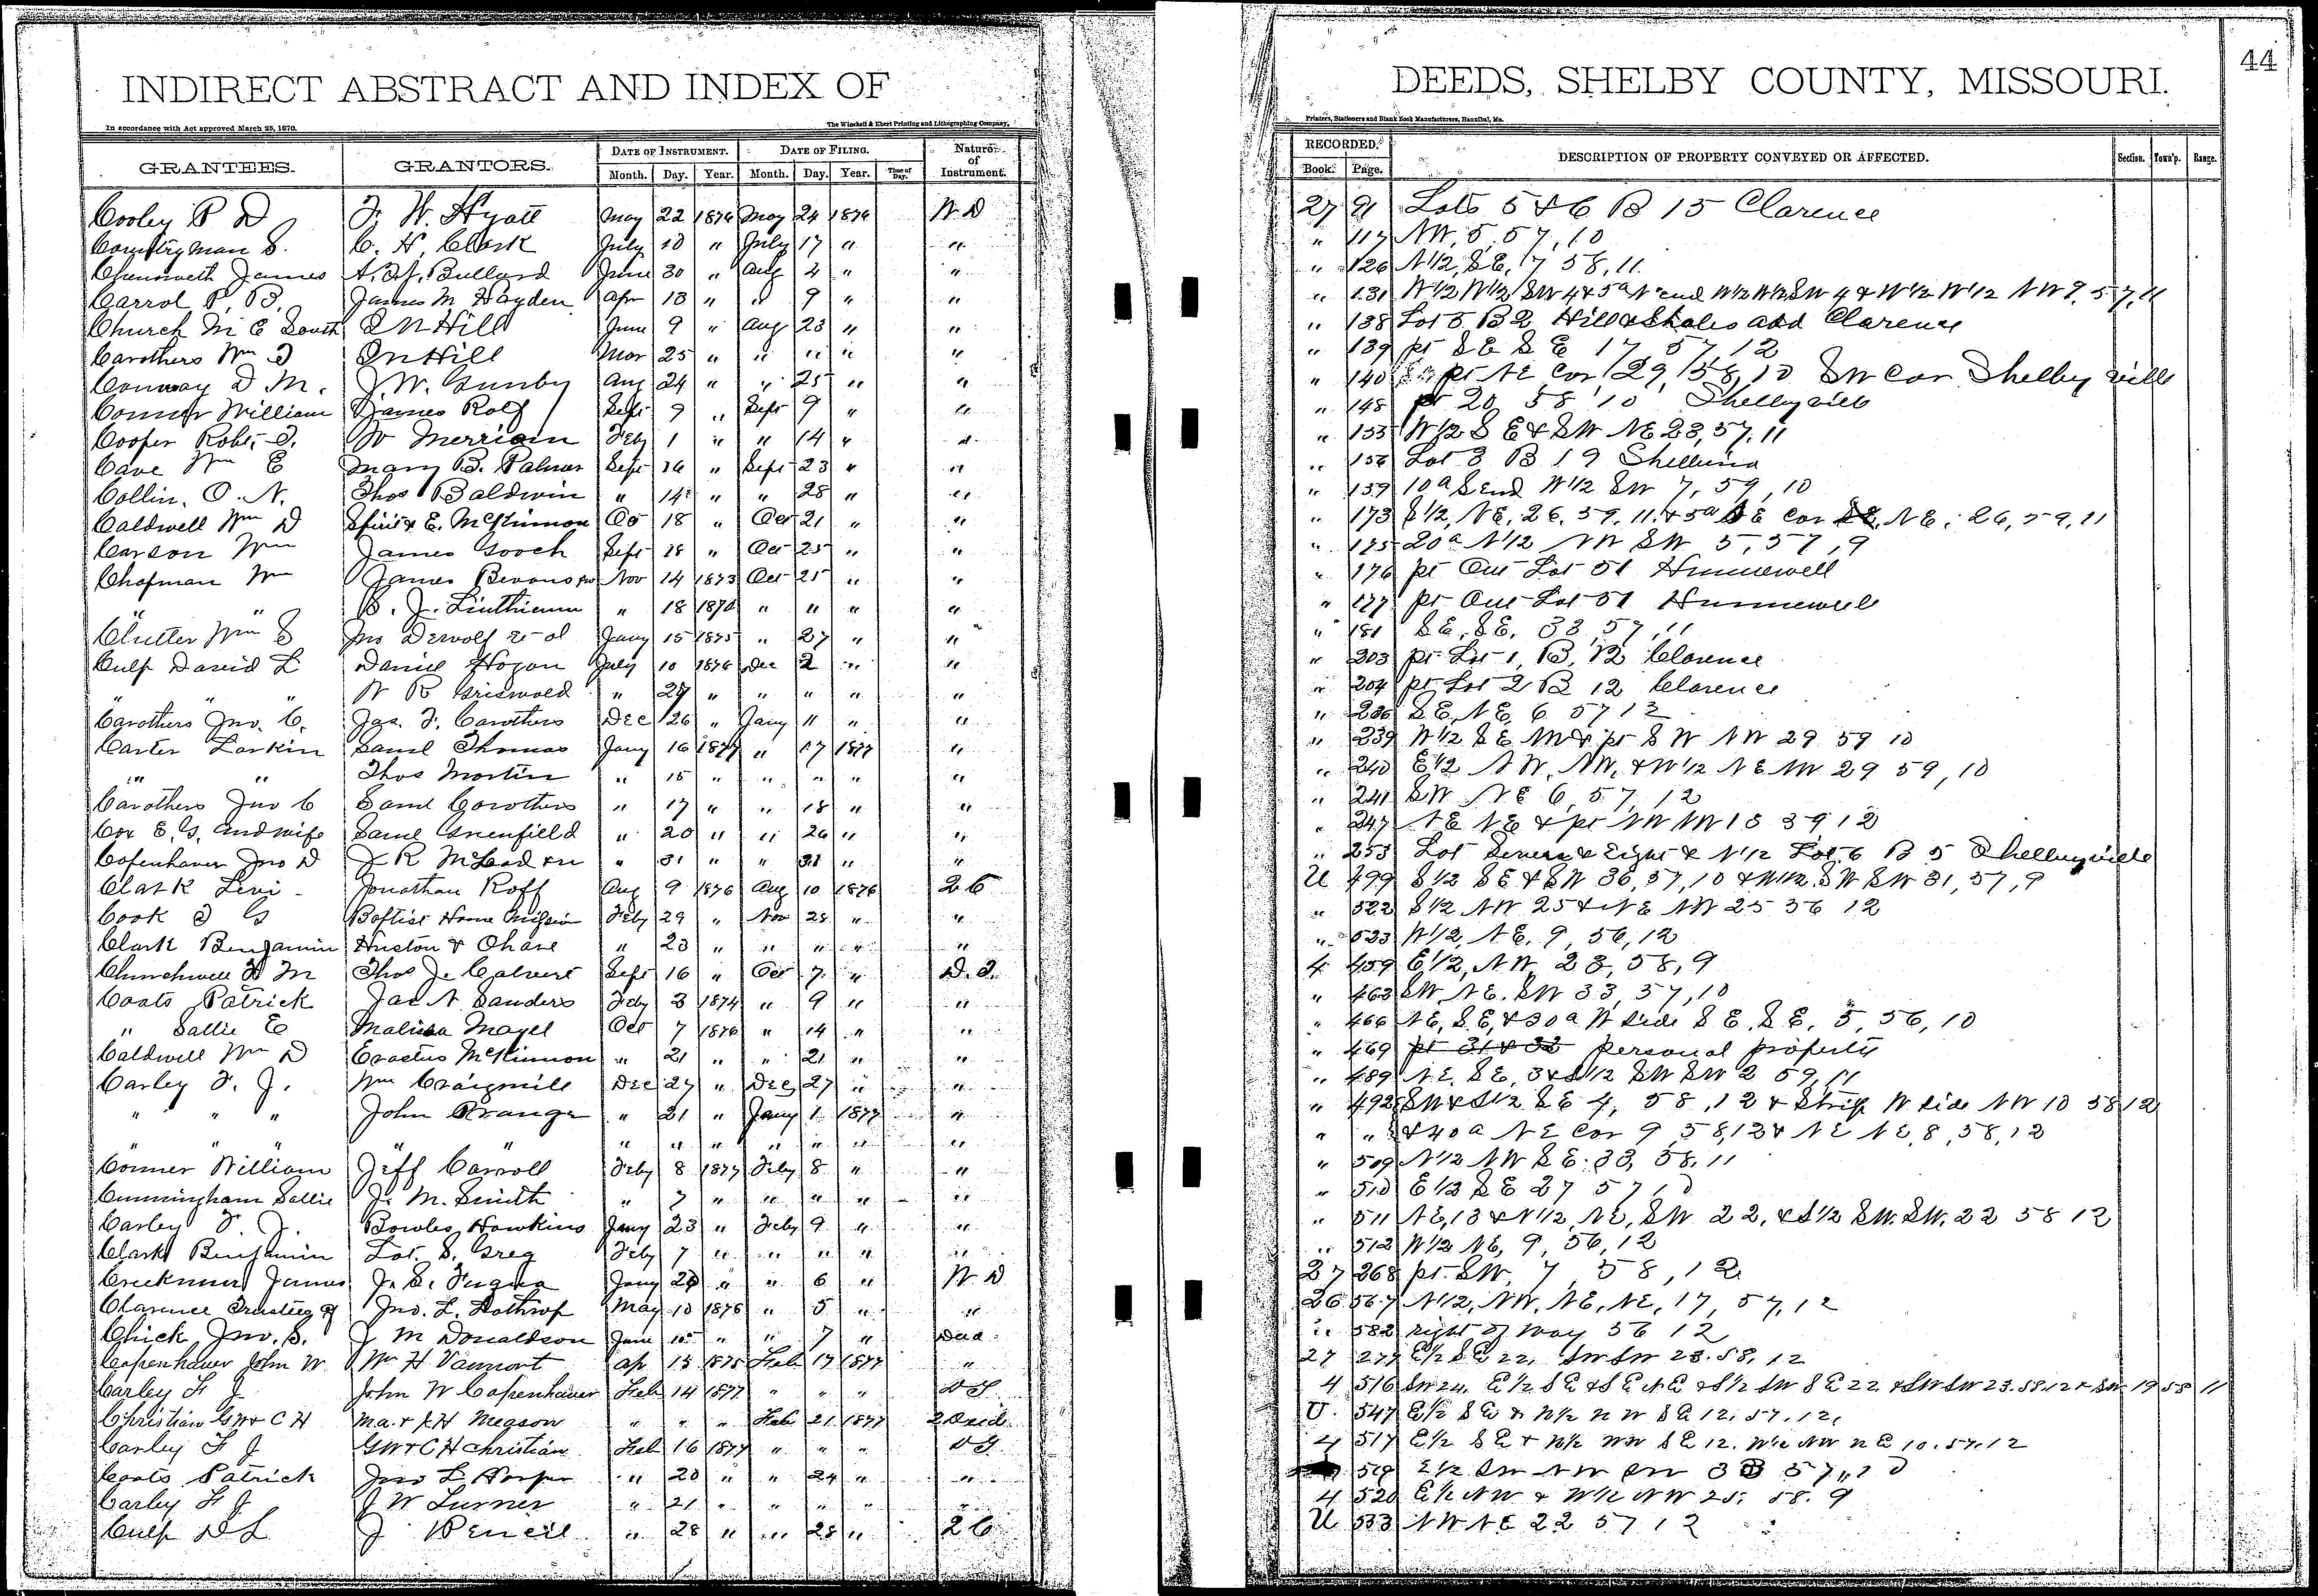 INDIRECT ABSTRACT AND INDEX OF DEEDS, SHELBY COUNTY, MISSOURI.
44
In accordance with Act approved March 25, 1870.
The Winchell & Ebert Printing and Lithographing Company,
Printers, Stationers and Blank Book Manufacturers, Hannibal, Mo.
GRANTEES. GRANTORS. DATE OF INSTRUMENT. DATE OF FILING. Nature of Instrument. RECORDED. DESCRIPTION OF PROPERTY CONVEYED OR AFFECTED. Section. Town'p. Range.
Month. Day. Year. Month. Day. Year. Time of Day. Book. Page.
Cooley P D F. W. Hyatt May 22 1876 May 24 1876 W D 27 91 Lots 5 & 6 B 15 Clarence
Countryman S. C. H. Clark July 10 " July 17 " " " 117 NW, 5, 57, 10
Chenoweth James Bullard June 30 " Aug 4 " " " 126 N1/2, SE, 17 58, 11
Carrol P. B. James M Hayden Apr 13 " " 9 " " " 131 W1/2 W1/2 SW 4 & 5a N end W1/2 W1/2 SW 4 & W1/2 W1/2 NW 9, 57, 11
Church M E South O N Hill June 9 " Aug 23 " " " 138 Lot 5 B 2 Hill & Shales add Clarence
Carothers Wm F O N Hill Mar 25 " " " " " " 139 pt S E S E 17, 57 12
Conway D M. J. W. Gunby Aug 24 " " 25 " " " 140 pt NE Cor 29, 58, 10 SW Cor Shelbyville
Conner William James Rolf Sept 9 " Sept 9 " " " 148 pt 20 58 10 Shelbyville
Cooper Robt. F. W Merriam Feby 1 " " 14 " " " 155 W1/2 S E & SW NE 23, 57, 11
Cave Wm E Mary B. Palmer Sept 16 " Sept 23 " " " 156 Lot 3 B 19 Shelbina
Collin. O. N. Thos Baldwin " 14 " " 28 " " " 159 10a S end W1/2 SW 7, 59, 10
Caldwell Wm D E. McKinnon Oct 18 " Oct 21 " " " 173 S1/2, NE, 26, 59, 11 & 5a SE Cor NE, 26, 59, 11
Carson Wm James Gooch Sept 28 " Oct 25 " " " 175 20a N1/2 NW SW 5, 57, 9
Chapman Wm James Bevans Nov 14 1873 Oct 25 " " " 176 pt Out Lot 51 Hunnewell
" " B. J. Linthicum " 18 1870 " " " " " 177 pt Out Lot 51 Hunnewell
Clutter Wm S Jno Dewolf et al Jany 15 1875 " 27 " " " 181 SE, SE, 33, 57, 11
Culp David L Daniel Hogan July 10 1876 Dec 2 " " " 203 pt Lot 1, B, 12 Clarence
" " " W R Griswold " 27 " " " " " " 204 pt Lot 2 B 12 Clarence
Carothers Jno. C. Jas. F. Carothers Dec 26 " Jany 11 " " " 236 SE, NE, 6 57 12
Carter Larkin Saml Thomas Jany 16 1877 " 17 1877 " " 239 W1/2 S E NW & pt S W NW 29 59 10
" " Thos Martin " 15 " " " " " " 240 E1/2 NW, NW, & W1/2 NE NW 29 59, 10
Carothers Jno C Saml Carothers " 17 " " 18 " " " 241 SW NE 6, 57, 12
Cox E. G. and wife Saml Greenfield " 20 " " 26 " " " 247 NE NE & pt NW
Copenhaver Jno D J R McLeod " 31 " " 31 " " " 253 Lot Seven & Eight & N1/2 Lot 6 B 5 Shelbyville
Clark Levi Jonathan Roff Aug 9 1876 Aug 10 1876 2C U 499 S1/2 SE & SW 36, 57, 10 & W1/2 SW SW 31, 57, 9
Cook Baptist Home Mission Feby 29 " Nov 28 " " " 522 S1/2 NW 25 & NE NW 25 56 12
Clark Benjamin Huston & Chase " 23 " " " " " " 523 W1/2, NE, 9, 56, 12
Churchwell M Thos J. Calvert Sept 16 " Oct 7 " D. T. 4 459 E1/2, NW, 23, 58, 9
Coats Patrick Jas N Sanders Feby 3 1874 " 9 " " " 463 SW, NE, SW 33, 57, 10
" Sallie E Malissa Magel Oct 7 1876 " 14 " " " 466 NE, SE, & 30a W side S E, S E, 5, 56, 10
Caldwell Wm D Erastus McKinnon " 21 " " 21 " " " 469 pt 31 & 32 personal property
Carley F. J. Wm Craigmill Dec 27 " Dec 27 " " " 489 NE, SE, 3 & S1/2 SW SW 2 59, 11
" " " John Prange " 21 " Jany 1 1877 " " 492 SW & S1/2 SE 4, 58, 12 & Strip W side NW 10 58 12
" " " " " " " " " " " " " " " & 40a NE Cor 9, 58, 12 & NE NE, 8, 58, 12
Conner William Jeff Carroll Feby 8 1877 Feby 8 " " " 509 N1/2 NW SE. 33, 58, 11
Cunningham Sallie J. M. Smith " 7 " " " " " " 510 E1/2 SE 27 57 10
Carley F. J. Bowles Hawkins Jany 23 " Feby 9 " " " 511 NE, 13 & N1/2, NE, SW 22, & S1/2 SW. SW. 22 58 12
Clark Benjamin Lot. S. Greg Feby 7 " " " " " " 512 W1/2 NE, 9, 56, 12
Creekmur James J. S. Fuqua Jany 26 " " 6 " W. D 27 268 pt. SW, 7, 58, 12
Clarence Trustees of Jno. L. Lathrop May 10 1876 " 5 " " 26 567 N1/2, NW, NE, NE, 17, 57, 12
Chick Jno. S. J M Donaldson June 10 " " 7 " Deed " 582 right of way 56 12
Copenhaver John W Wm H Vanmort Ap 13 1875 Feb 17 1877 " 27 277 E1/2 SE 22, SW SW 23. 58, 12
Carley F J John W Copenhaver Feb 14 1877 " " " D T 4 516 SW 24, E1/2 SE & SE NE & S1/2 SW SE 22 & SW SW 23. 58. 12 & SW 19 58 11
Christian GW & C H Ma. & J. H Megson " " " Feb 21 1877 2 Deed U. 547 E1/2 SE & N1/2 NW SE 12, 57, 12,
Carley F J GW & C H Christian Feb 16 1877 " " " D T 4 517 E1/2 SE & N1/2 NW SE 12. W1/2 NW NE 10. 57. 12
Coats Patrick Jno L Harper " 20 " " 24 " " 519 E1/2 SW NW SW 33 57, 10
Carley F J J W Turner " 21 " " " " " 4 520 E1/2 NW & W1/2 NW 25. 58. 9
Culp D L J Pencil " 28 " " 28 " 2 C U 533 NW NE 22 57 12